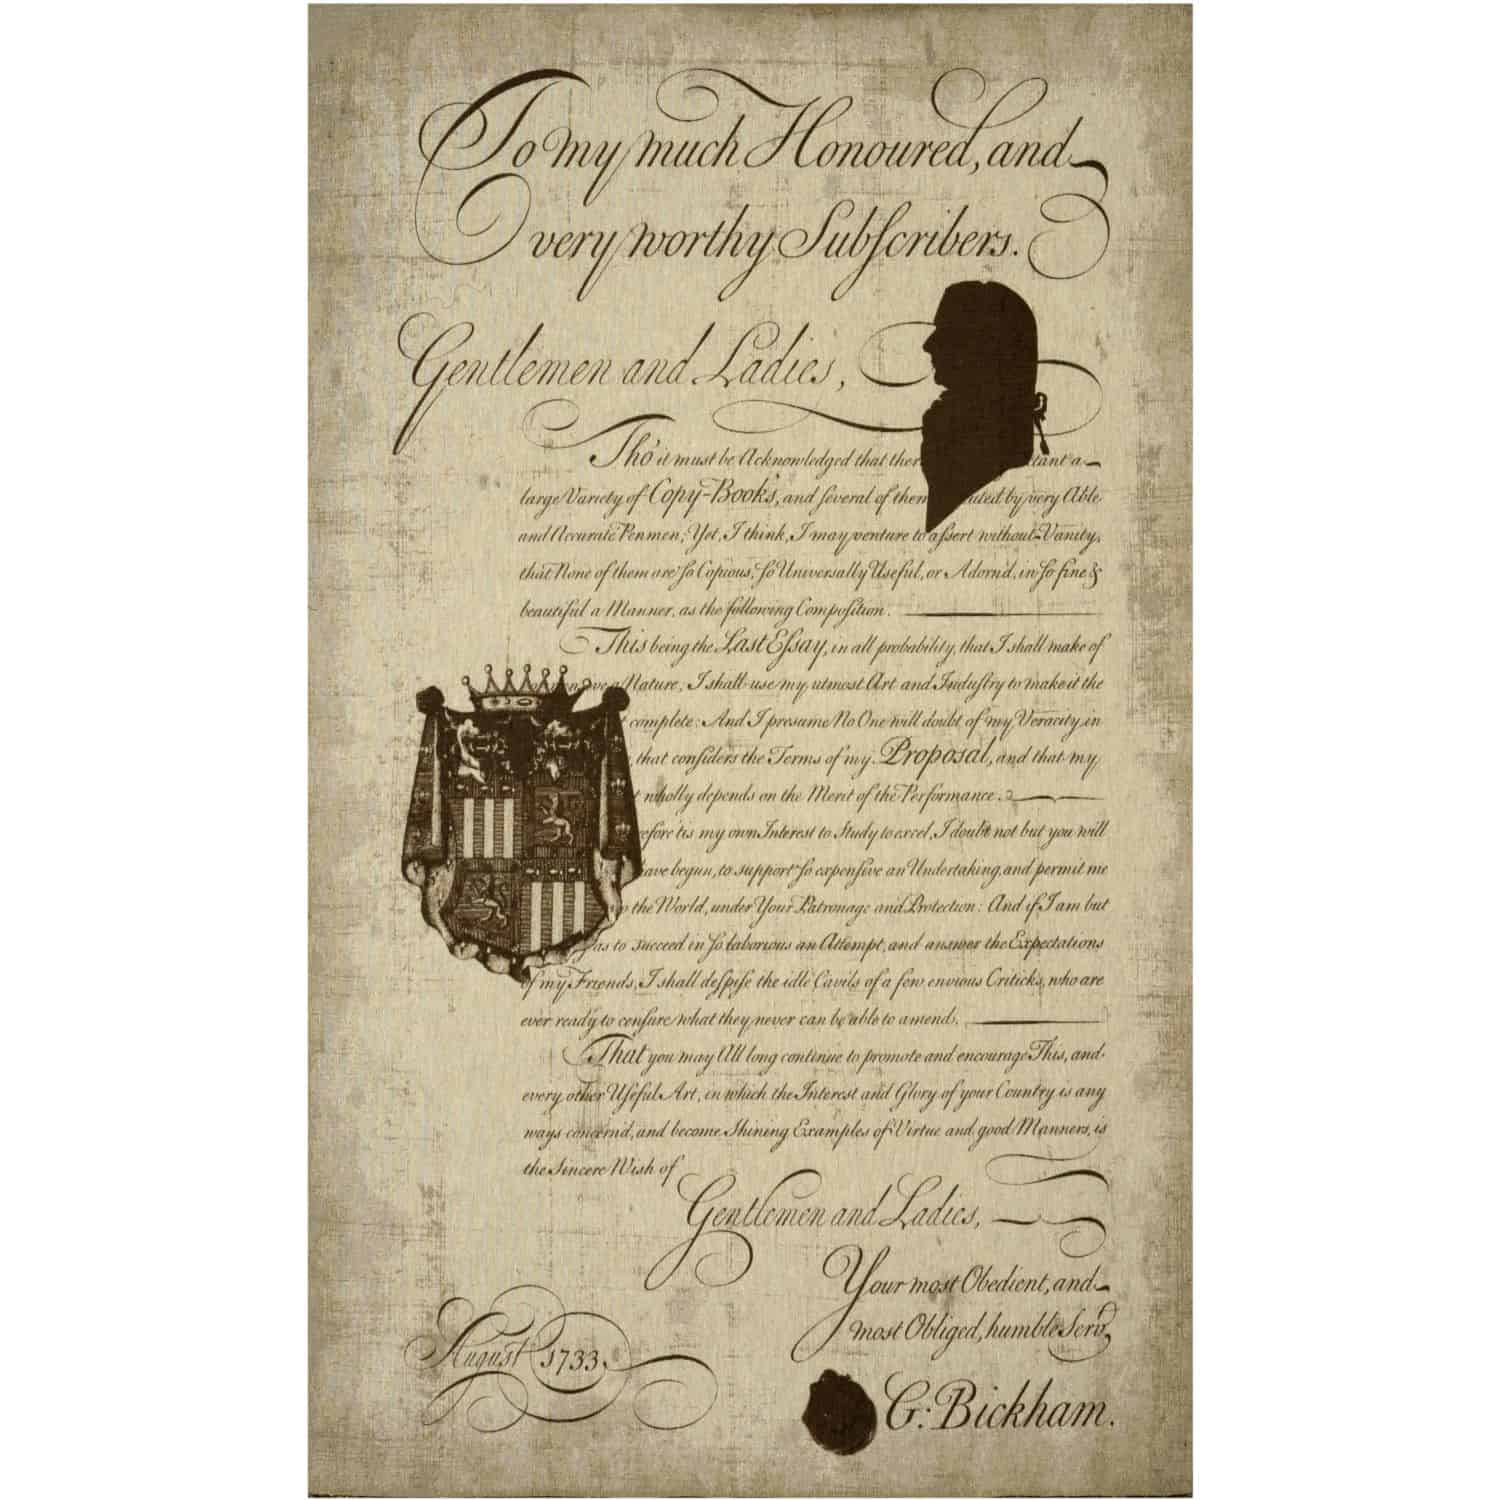 To my much Honoured, and
very worthy Subſcribers.
Gentlemen and Ladies,
Tho' it must be Acknowledged that ther
large Variety of Copy-Books, and ſeveral of them uted by very Able
and Accurate Penmen; Yet, I think, I may venture to aſsert without Vanity,
that None of them are ſo Copious, ſo Universally Useful, or Adorn'd, in ſo fine &
beautiful a Manner, as the following Compoſition.
This being the Last Eſsay, in all probability, that I shall make of
Nature, I shall use my utmost Art and Induſtry to make it the
complete: And I presume No One will doubt of my Veracity in
that conſiders the Terms of my Proposal, and that my
wholly depends on the Merit of the Performance.
efore 'tis my own Interest to Study to excel, I doubt not but you will
ave begun, to support ſo expenſive an Undertaking, and permit me
the World, under Your Patronage and Protection: And if I am but
as to succeed in ſo laborious an Attempt, and answer the Expectations
of my Friends, I shall deſpiſe the idle Cavils of a few envious Criticks, who are
ever ready to cenſure what they never can be able to amend.
That you may All long continue to promote and encourage This, and
every other Uſeful Art, in which the Interest and Glory of your Country is any
ways concern'd, and become Shining Examples of Virtue and good Manners, is
the Sincere Wish of
Gentlemen and Ladies,
Your most Obedient, and
most Obliged, humble Serv.t
August 1733.
G: Bickham.